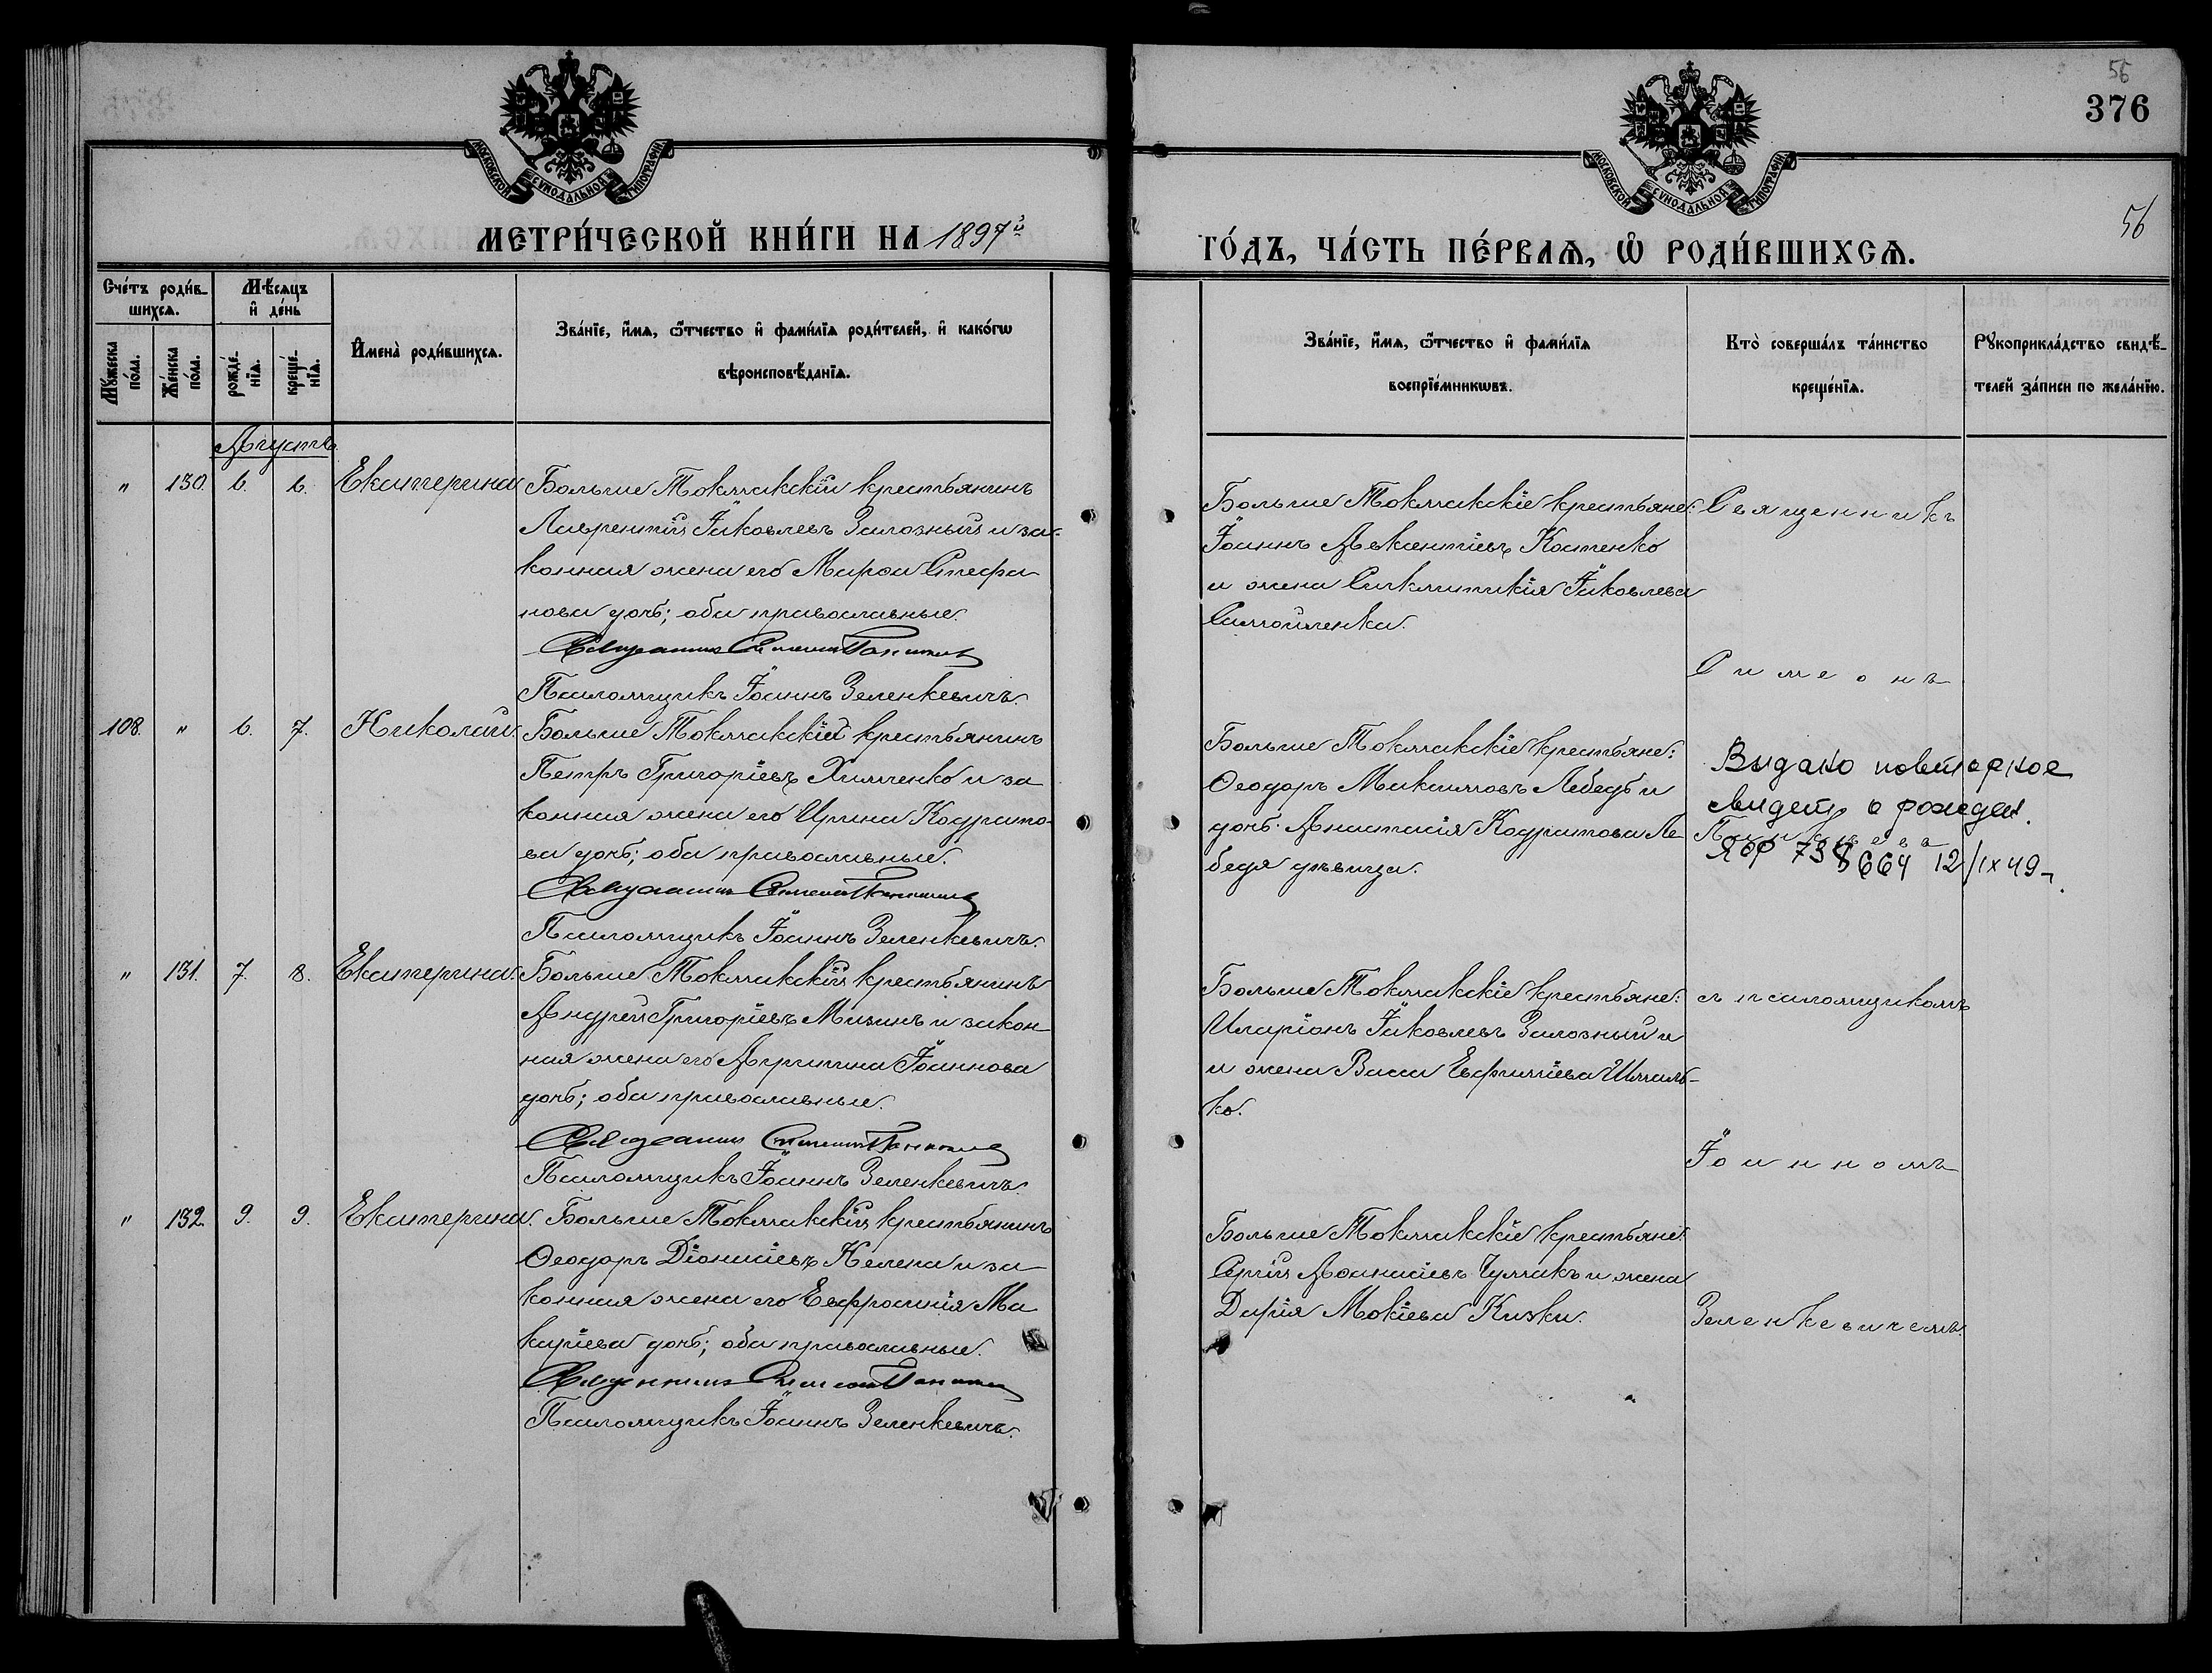 56
376
56
МОСКОВСКОЙ СѴНОДАЛЬНОЙ ТИПОГРАФІИ
МОСКОВСКОЙ СѴНОДАЛЬНОЙ ТИПОГРАФІИ
МЕТРИ́ЧЕСКОЙ КНИ́ГИ НА 1897й
ГО́ДЪ, ЧА́СТЬ ПЕ́РВАѦ, Ѽ РОДИ́ВШИХСѦ.
Сче́тъ роди́в-
шихсѧ.
Мѣ́сяцъ
и҆ де́нь
Мꙋ́жеска по́ла.
Же́нска по́ла.
рожде́-нїѧ.
креще́-нїѧ.
И҆мена̀ роди́вшихсѧ.
Зва́нїе, и҆́мѧ, ѻ҆́тчество и҆ фами́лїѧ роди́телей, и҆ како́гѡ
вѣроисповѣ́данїѧ.
Зва́нїе, и҆́мѧ, ѻ҆́тчество и҆ фами́лїѧ
воспрїе́мникѡвъ.
Кто̀ соверша́лъ та́инство
креще́нїѧ.
Рꙋкоприкла́дство свидѣ́-
телей за́писи по жела́нїю.
Августъ
" 130. 6. 6. Екатерина Больше Токмакскій крестьянинъ
Лаврентій Іаковлевъ Залозный и за-
конная жена его Марѳа Стефа
нова дочь; оба православные.
Священникъ Симеонъ
Псаломщикъ Іоаннъ Зеленкевичъ.
Больше Токмакскіе крестьяне:
Іоаннъ Авксентіевъ Костенко
и жена Синклитикія Іаковлева
Самойленка.
Священникъ
Симеонъ
108. " 6. 7. Николай. Больше Токмакскій крестьянинъ
Петръ Григоріевъ Химченко и за
конная жена его Ирина Кодрато-
ва дочь; оба православные.
Священникъ Симеонъ
Псаломщикъ Іоаннъ Зеленкевичъ.
Больше Токмакскіе крестьяне:
Ѳеодоръ Максимовъ Лебедь и
дочь Анастасія Кодратова Ле
бедя дѣвица.
Выдано повторное
свидет о рожден.
ЯЮР 738664 12/IX 49
" 131. 7. 8. Екатерина. Больше Токмакскій крестьянинъ
Андрей Григоріевъ Мизинъ и закон
ная жена его Агрипина Іоаннова
дочь; оба православные.
Священникъ Симеонъ
Псаломщикъ Іоаннъ Зеленкевичъ.
Больше Токмакскіе крестьяне:
Иларіонъ Іаковлевъ Залозный и
и жена Васса Евфиміева Шмаль-
ко.
съ псаломщикомъ
Іоанномъ
" 132. 9. 9. Екатерина. Больше Токмакскій крестьянинъ
Ѳеодоръ Діонисіевъ Келека и за
конная жена его Евфросинія Ма
каріева дочь; оба православные.
Священникъ Симеонъ
Псаломщикъ Іоаннъ Зеленкевичъ.
Больше Токмакскіе крестьяне:
Сергій Аѳанасіевъ Чумакъ и жена
Дарія Мокіева Кизка.
Зеленкевичемъ.